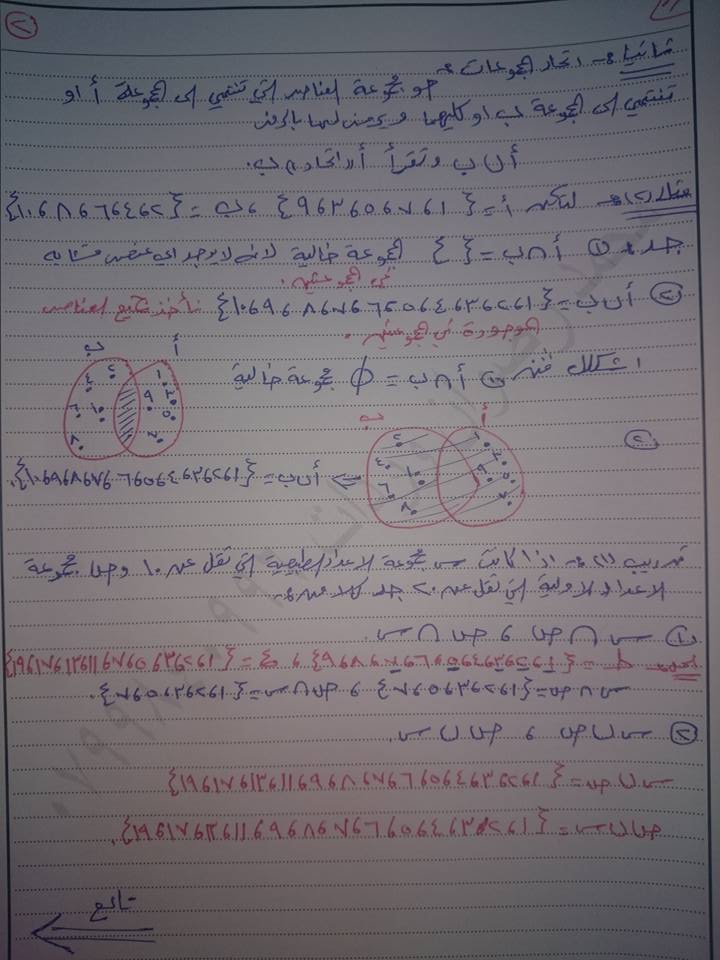 ٢
ثانياً :- اتحاد المجموعات :-
هو مجموعة العناصر التي تنتمي إلى المجموعة أ أو
تنتمي إلى المجموعة ب أو كليهما ويرمز لها بالرمز
أ ∪ ب وتقرأ أ اتحاد ب.
مثال (٢) :- لتكن أ = {١، ٧، ٥، ٣، ٩} ، ب = {٢، ٤، ٦، ٨، ١٠}
جد :- ① أ ∩ ب = { } المجموعة خالية لأنه لا يوجد أي عنصر مشابه
في المجموعتين.
② أ ∪ ب = {١، ٢، ٣، ٤، ٥، ٦، ٧، ٨، ٩، ١٠} نأخذ جميع العناصر
الموجودة في المجموعتين.
أشكال فن :- ① أ ∩ ب = ∅ مجموعة خالية
أ ب
١ ٣ ٩ ٥ ٧
٢ ٤ ٦ ١٠ ٨
②
أ ب
١ ٣ ٩ ٥ ٧
٢ ٤ ٦ ١٠ ٨
⇐ أ ∪ ب = {١، ٢، ٣، ٤، ٥، ٦، ٧، ٨، ٩، ١٠}.
تدريب (٢) :- إذا كانت س مجموعة الأعداد الطبيعية التي تقل عن ١٠ وص مجموعة
الأعداد الأولية التي تقل عن ٢٠ جد كلا من :-
① س ∩ ص ، ص ∩ س.
= {١، ٢، ٣، ٤، ٥، ٦، ٧، ٨، ٩} ، = {١، ٢، ٣، ٥، ٧، ١١، ١٣، ١٧، ١٩}
س ∩ ص = {١، ٢، ٣، ٥، ٧} ، ص ∩ س = {١، ٢، ٣، ٥، ٧}.
② س ∪ ص ، ص ∪ س.
س ∪ ص = {١، ٢، ٣، ٤، ٥، ٦، ٧، ٨، ٩، ١١، ١٣، ١٧، ١٩}
ص ∪ س = {١، ٢، ٣، ٤، ٥، ٦، ٧، ٨، ٩، ١١، ١٣، ١٧، ١٩}.
تابع